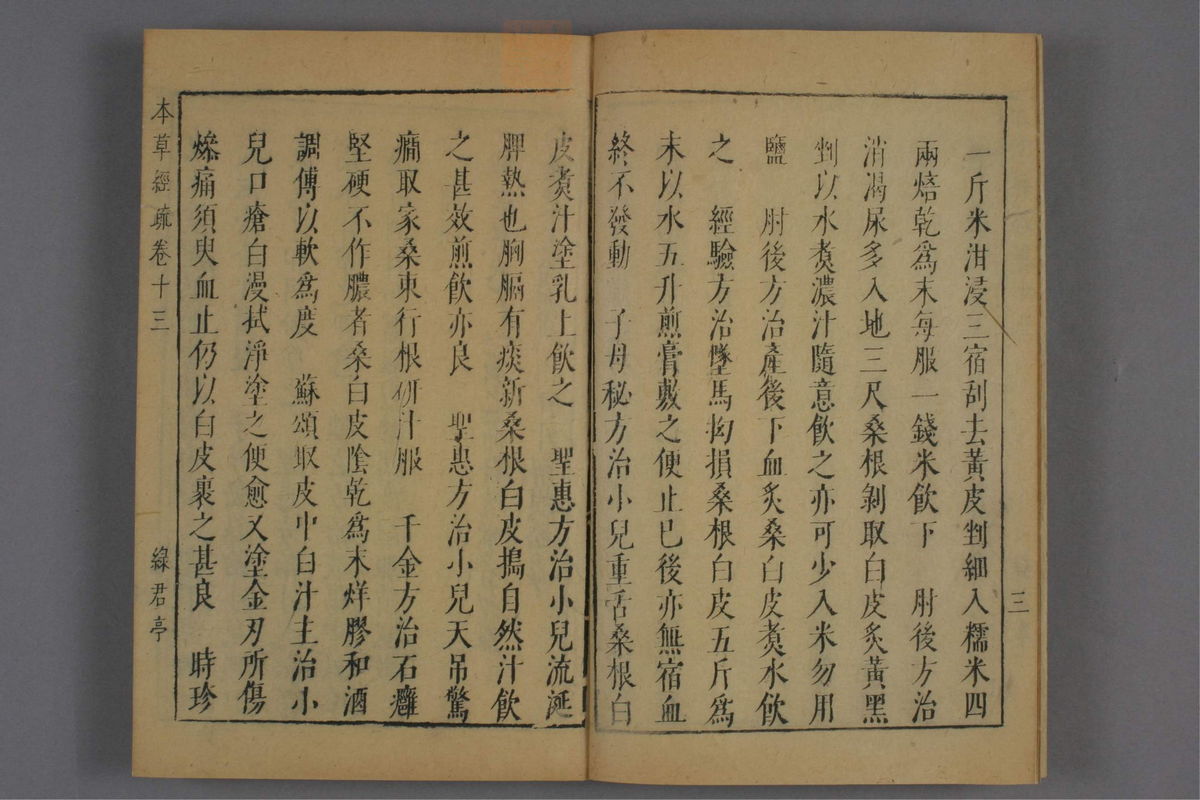 一斤米泔浸三宿刮去黃皮剉細入糯米四
兩焙乾爲末每服一錢米飲下　肘後方治
消渴尿多入地三尺桑根剝取白皮炙黃黑
剉以水煑濃汁隨意飲之亦可少入米勿用
鹽　肘後方治產後下血炙桑白皮煑水飲
之　經驗方治墜馬拗損桑根白皮五斤爲
末以水五升煎膏敷之便止已後亦無宿血
終不發動　子母秘方治小兒重舌桑根白
三
皮煑汁塗乳上飲之　聖惠方治小兒流涎
脾熱也胸膈有痰新桑根白皮搗自然汁飲
之甚效煎飲亦良　聖惠方治小兒天吊驚
癇取家桑東行根研汁服　千金方治石癰
堅硬不作膿者桑白皮陰乾爲末烊膠和酒
調傅以軟爲度　蘇頌取皮中白汁主治小
兒口瘡白漫拭淨塗之便愈又塗金刃所傷
燥痛須臾血止仍以白皮裹之甚良　時珍
本草經疏卷十三
綠君亭